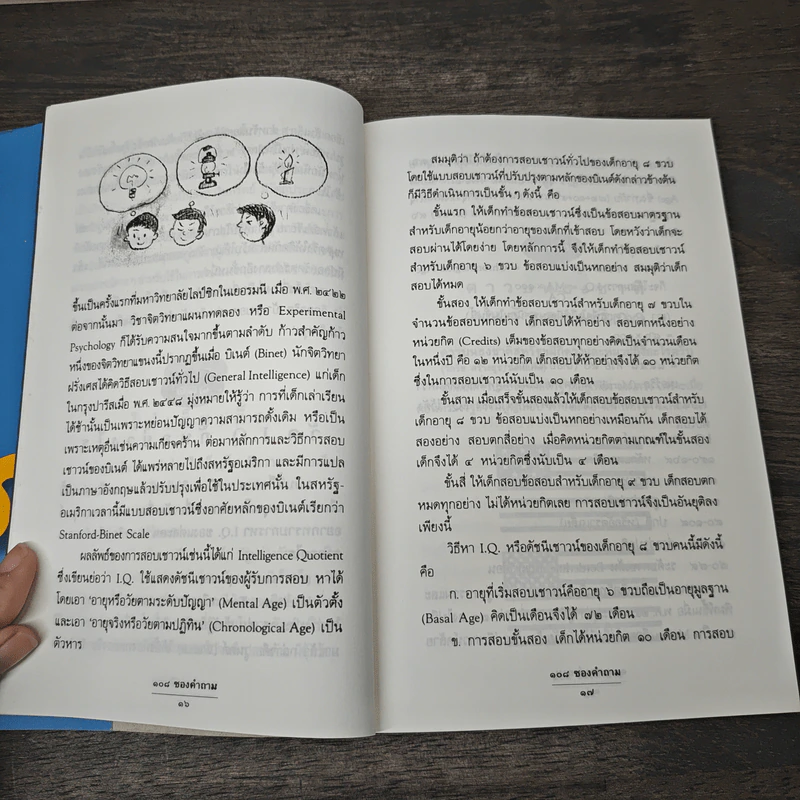 ขึ้นเป็นครั้งแรกที่มหาวิทยาลัยไลป์ซิกในเยอรมนี เมื่อ พ.ศ. ๒๔๒๒
ต่อจากนั้นมา วิชาจิตวิทยาแผนกทดลอง หรือ Experimental
Psychology ก็ได้รับความสนใจมากขึ้นตามลำดับ ก้าวสำคัญก้าว
หนึ่งของจิตวิทยาแขนงนี้ปรากฏขึ้นเมื่อ บิเนต์ (Binet) นักจิตวิทยา
ฝรั่งเศสได้คิดวิธีสอบเชาวน์ทั่วไป (General Intelligence) แก่เด็ก
ในกรุงปารีสเมื่อ พ.ศ. ๒๔๔๘ มุ่งหมายให้รู้ว่า การที่เด็กเล่าเรียน
ได้ช้านั้นเป็นเพราะหย่อนปัญญาความสามารถดั้งเดิม หรือเป็น
เพราะเหตุอื่นเช่นความเกียจคร้าน ต่อมาหลักการและวิธีการสอบ
เชาวน์ของบิเนต์ ได้แพร่หลายไปถึงสหรัฐอเมริกา และมีการแปล
เป็นภาษาอังกฤษแล้วปรับปรุงเพื่อใช้ในประเทศนั้น ในสหรัฐ-
อเมริกาเวลานี้มีแบบสอบเชาวน์ซึ่งอาศัยหลักของบิเนต์เรียกว่า
Stanford-Binet Scale
ผลลัพธ์ของการสอบเชาวน์เช่นนี้ได้แก่ Intelligence Quotient
ซึ่งเขียนย่อว่า I.Q. ใช้แสดงดัชนีเชาวน์ของผู้รับการสอบ หาได้
โดยเอา 'อายุหรือวัยตามระดับปัญญา' (Mental Age) เป็นตัวตั้ง
และเอา 'อายุจริงหรือวัยตามปฏิทิน' (Chronological Age) เป็น
ตัวหาร
๑๐๘ ซองคำถาม
๑๖
สมมุติว่า ถ้าต้องการสอบเชาวน์ทั่วไปของเด็กอายุ ๘ ขวบ
โดยใช้แบบสอบเชาวน์ที่ปรับปรุงตามหลักของบิเนต์ดังกล่าวข้างต้น
ก็มีวิธีดำเนินการเป็นขั้นๆ ดังนี้ คือ
ขั้นแรก ให้เด็กทำข้อสอบเชาวน์ซึ่งเป็นข้อสอบมาตรฐาน
สำหรับเด็กอายุน้อยกว่าอายุของเด็กที่เข้าสอบ โดยหวังว่าเด็กจะ
สอบผ่านได้โดยง่าย โดยหลักการนี้ จึงให้เด็กทำข้อสอบเชาวน์
สำหรับเด็กอายุ ๖ ขวบ ข้อสอบแบ่งเป็นหกอย่าง สมมุติว่าเด็ก
สอบได้หมด
ขั้นสอง ให้เด็กทำข้อสอบเชาวน์สำหรับเด็กอายุ ๗ ขวบใน
จำนวนข้อสอบหกอย่าง เด็กสอบได้ห้าอย่าง สอบตกหนึ่งอย่าง
หน่วยกิต (Credits) เต็มของข้อสอบทุกอย่างคิดเป็นจำนวนเดือน
ในหนึ่งปี คือ ๑๒ หน่วยกิต เด็กสอบได้ห้าอย่างจึงได้ ๑๐ หน่วยกิต
ซึ่งในการสอบเชาวน์นับเป็น ๑๐ เดือน
ขั้นสาม เมื่อเสร็จขั้นสองแล้วให้เด็กสอบข้อสอบเชาวน์สำหรับ
เด็กอายุ ๘ ขวบ ข้อสอบแบ่งเป็นหกอย่างเหมือนกัน เด็กสอบได้
สองอย่าง สอบตกสี่อย่าง เมื่อคิดหน่วยกิตตามเกณฑ์ในขั้นสอง
เด็กจึงได้ ๔ หน่วยกิตซึ่งนับเป็น ๔ เดือน
ขั้นสี่ ให้เด็กสอบข้อสอบสำหรับเด็กอายุ ๙ ขวบ เด็กสอบตก
หมดทุกอย่าง ไม่ได้หน่วยกิตเลย การสอบเชาวน์จึงเป็นอันยุติลง
เพียงนี้
วิธีหา I.Q. หรือดัชนีเชาวน์ของเด็กอายุ ๘ ขวบคนนี้มีดังนี้
คือ
ก. อายุที่เริ่มสอบเชาวน์คืออายุ ๖ ขวบถือเป็นอายุมูลฐาน
(Basal Age) คิดเป็นเดือนจึงได้ ๗๒ เดือน
ข. การสอบขั้นสอง เด็กได้หน่วยกิต ๑๐ เดือน การสอบ
๑๐๘ ซองคำถาม
๑๗